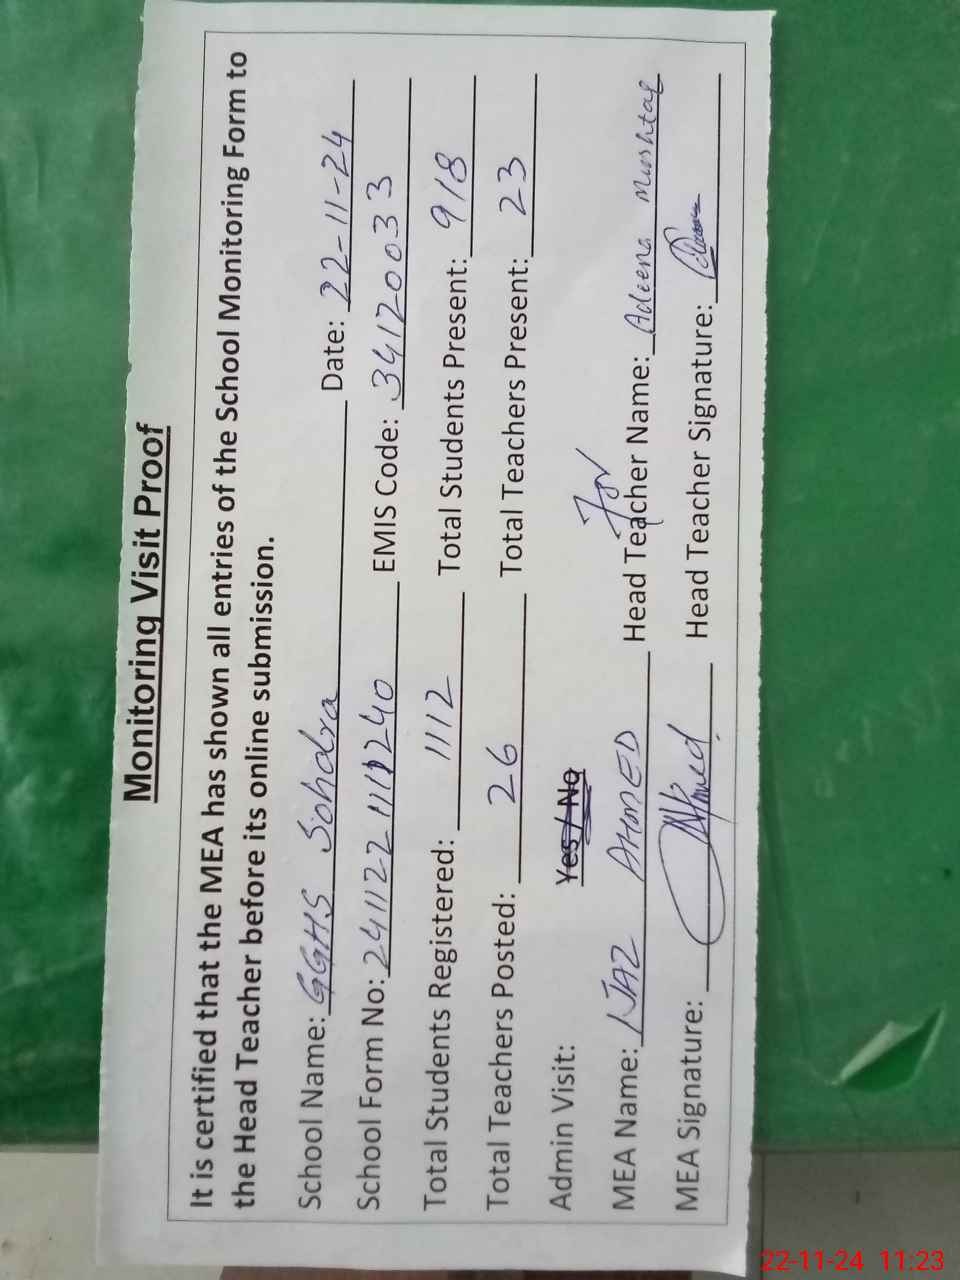 Monitoring Visit Proof
It is certified that the MEA has shown all entries of the School Monitoring Form to
the Head Teacher before its online submission.
School Name: GGHS Sohdra Date: 22-11-24
School Form No: 241122111240 EMIS Code: 34120033
Total Students Registered: 1112 Total Students Present: 918
Total Teachers Posted: 26 Total Teachers Present: 23
Admin Visit: Yes / No
For
MEA Name: IJAZ AHMED Head Teacher Name: Adeena Mushtaq
MEA Signature: Ahmed Head Teacher Signature:
22-11-24 11:23